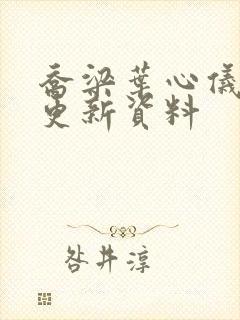 喬梁葉心儀
更新資料
咎井淳